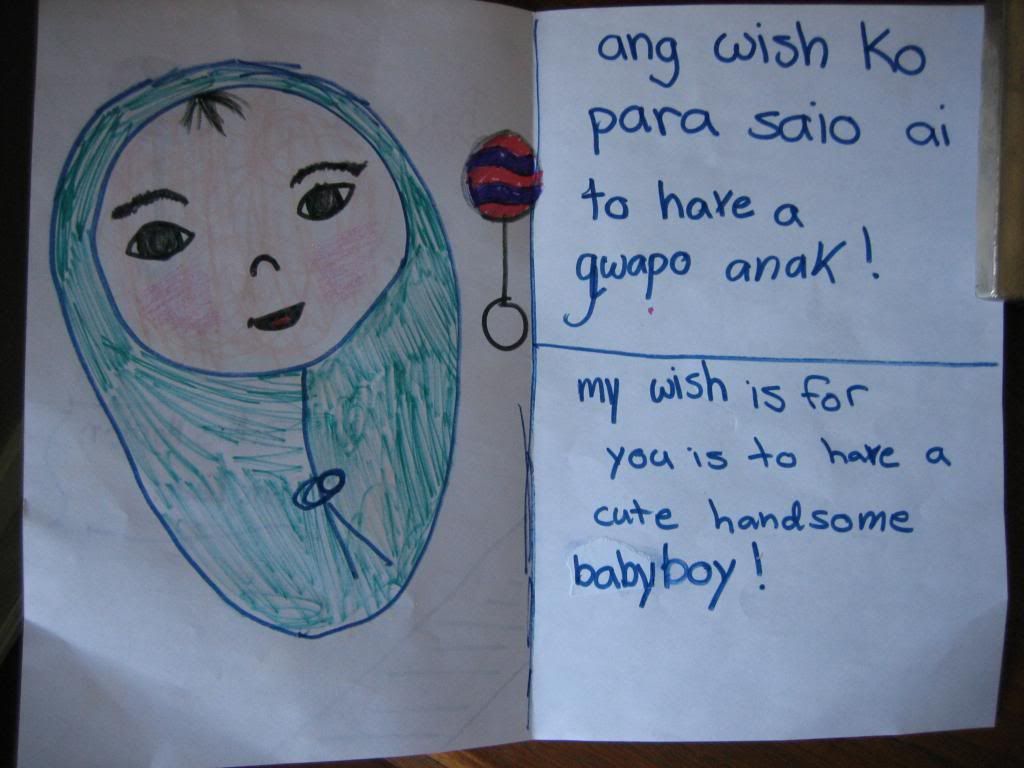 ang wish ko
para saio ai
to have a
gwapo anak!
my wish is for
you is to have a
cute handsome
babyboy!